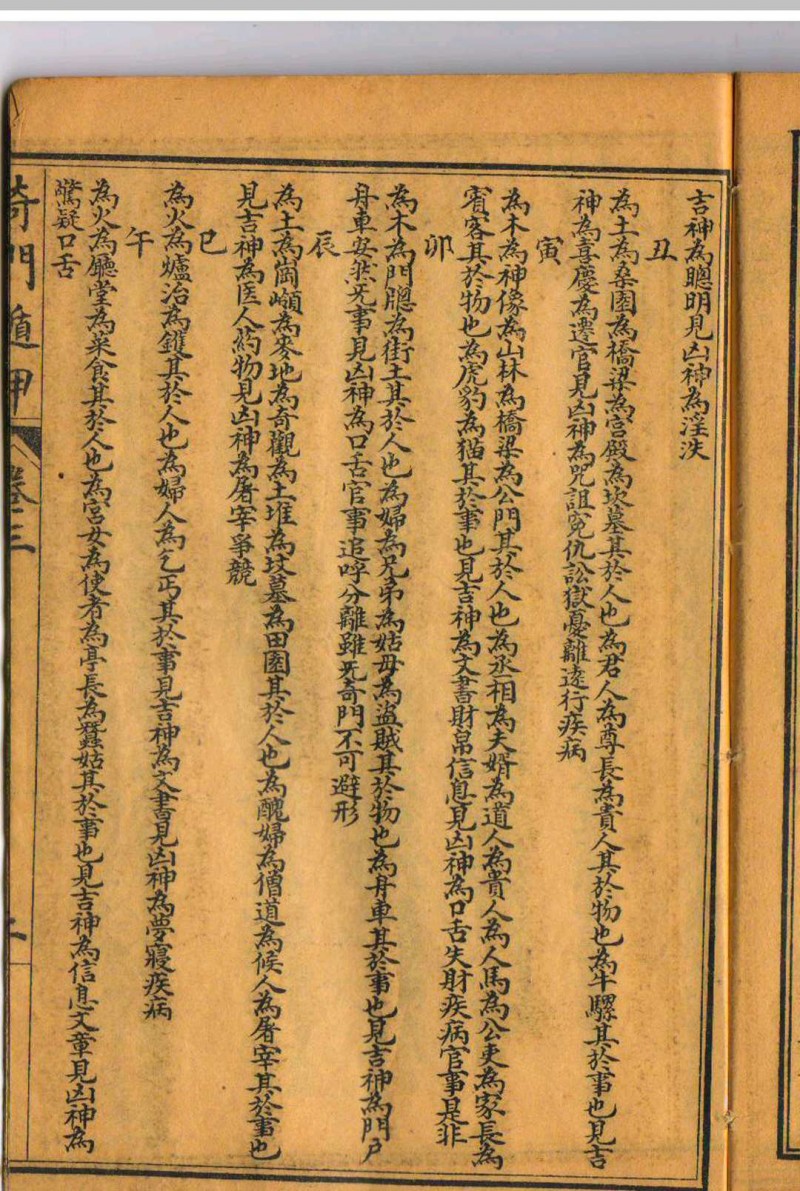 吉神為聰明見凶神為淫泆
丑
為土為桑園為橋梁為宮殿為坟墓其於人也為君人為尊長為貴人其於物也為牛騾其於事也見吉
神為喜慶為遷官見凶神為咒詛冤仇訟獄憂離遠行疾病
寅
為木為神像為山林為橋梁為公門其於人也為丞相為夫婿為道人為貴人為人馬為公吏為家長為
賓客其於物也為虎豹為猫其於事也見吉神為文書財帛信息見凶神為口舌失財疾病官事是非
卯
為木為門牎為街土其於人也為婦為兄弟為姑母為盜賊其於物也為舟車其於事也見吉神為門戶
舟車安然无事見凶神為口舌官事追呼分離雖无奇門不可避形
辰
為土為崗嶺為麥地為奇觀為土堆為坟墓為田園其於人也為醜婦為僧道為候人為屠宰其於事也
見吉神為医人药物見凶神為屠宰爭競
巳
為火為爐冶為鑊其於人也為婦人為乞丐其於事見吉神為文書見凶神為夢寢疾病
午
為火為廳堂為菜食其於人也為宮女為使者為亭長為蠶姑其於事也見吉神為信息文章見凶神為
驚疑口舌
奇門遁甲
卷三